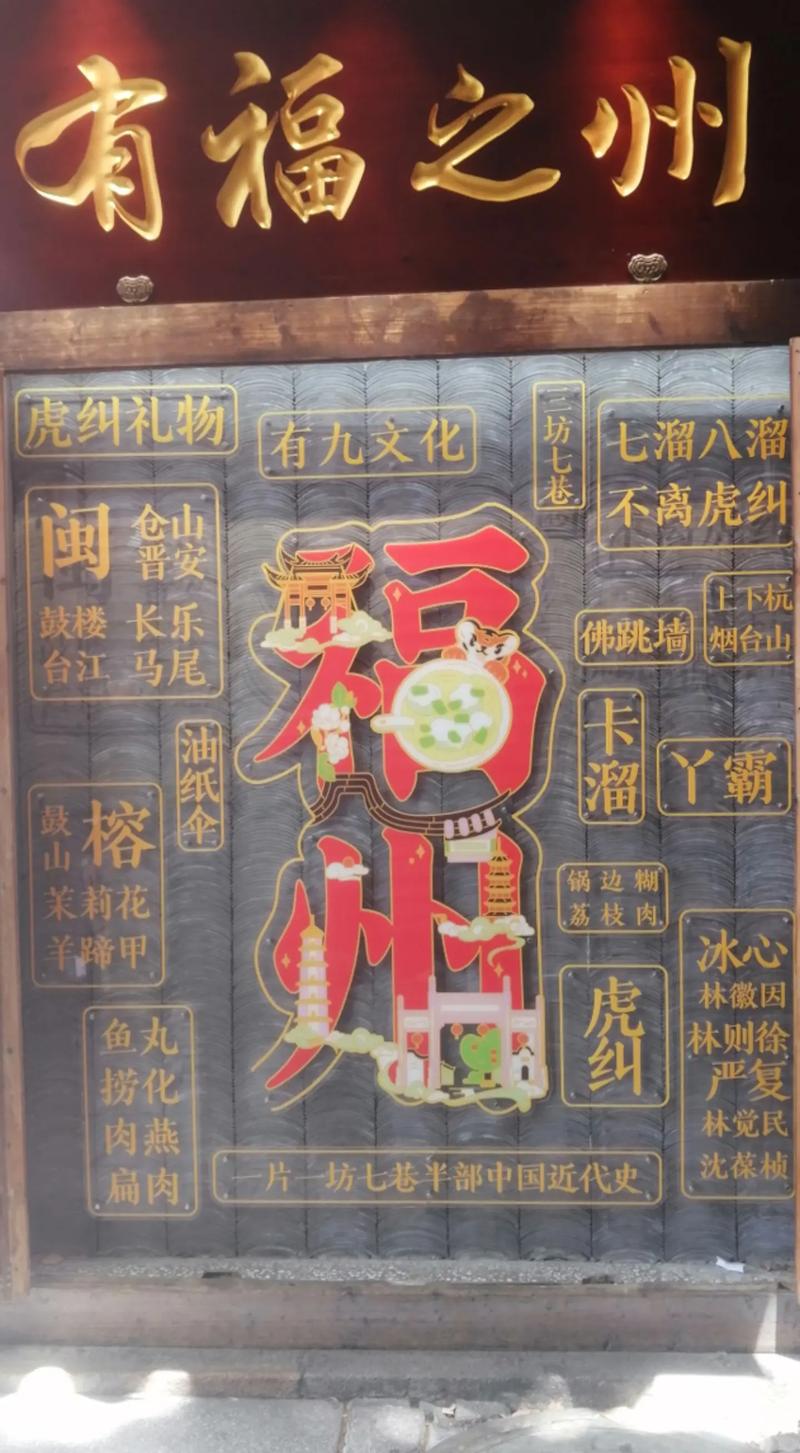 有福之州
虎纠礼物
有九文化
三坊七巷
七溜八溜
不离虎纠
闽
仓山
晋安
鼓楼 长乐
台江 马尾
佛跳墙
上下杭
烟台山
油纸伞
福州
卡溜
丫霸
鼓山
榕
茉莉花
羊蹄甲
锅边糊
荔枝肉
冰心
林徽因
林则徐
严复
林觉民
沈葆桢
虎纠
鱼丸
捞化
肉燕
扁肉
一片一坊七巷半部中国近代史